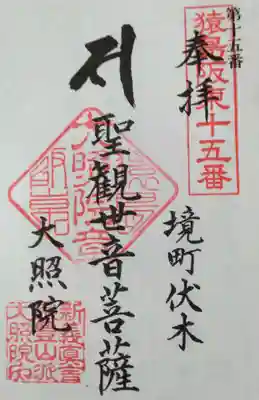 第十五番
猿島阪東十五番
奉拝
境町伏木
聖観世音菩薩
大照院
新義真言
豊山派
大照院印